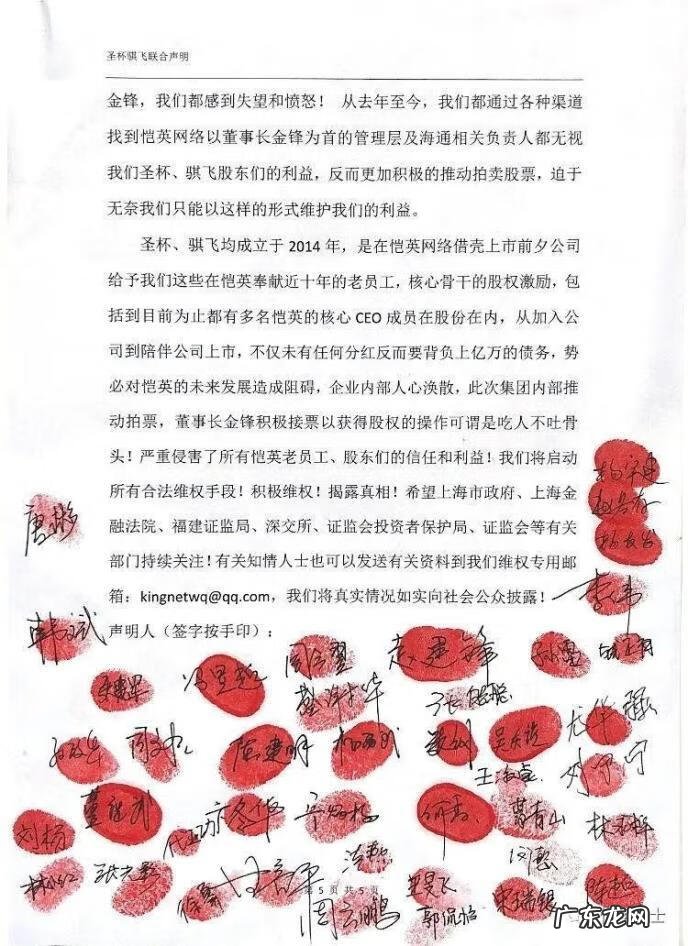 圣杯骐飞联合声明
金锋，我们都感到失望和愤怒！ 从去年至今，我们都通过各种渠道
找到恺英网络以董事长金锋为首的管理层及海通相关负责人都无视
我们圣杯、骐飞股东们的利益，反而更加积极的推动拍卖股票，迫于
无奈我们只能以这样的形式维护我们的利益。
圣杯、骐飞均成立于 2014 年，是在恺英网络借壳上市前夕公司
给予我们这些在恺英奉献近十年的老员工，核心骨干的股权激励，包
括到目前为止都有多名恺英的核心 CEO 成员在股份在内，从加入公
司到陪伴公司上市，不仅未有任何分红反而要背负上亿万的债务，势
必对恺英的未来发展造成阻碍，企业内部人心涣散，此次集团内部推
动拍票，董事长金锋积极接票以获得股权的操作可谓是吃人不吐骨
头！严重侵害了所有恺英老员工、股东们的信任和利益！我们将启动
所有合法维权手段！积极维权！揭露真相！希望上海市政府、上海金
融法院、福建证监局、深交所、证监会投资者保护局、证监会等有关
部门持续关注！有关知情人士也可以发送有关资料到我们维权专用邮
箱：kingnetwq@qq.com，我们将真实情况如实向社会公众披露！
声明人（签字按手印）：
唐彬
李韦
冯显超
赵建锋
唐建明
刘杨
董青山
何燕
张元彪
第 5 页 共 5 页
周云鹏
郭侃怡
宋瑞银
士
广东龙网